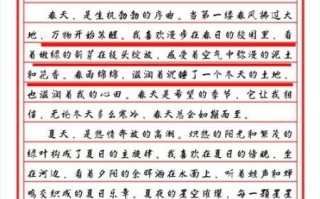 春天，是生机勃勃的序曲。当第一缕春风拂过大
地，万物开始苏醒。我喜欢漫步在春日的校园里，看
着嫩绿的新芽在枝头绽放，感受着空气中弥漫的泥土
和花香。春雨绵绵，滋润着沉睡了一个冬天的土地，
也滋润着我的心田。春天是希望的季节，它让我相
信，无论冬天多么寒冷，春天总会如期而至。
夏天，是热情奔放的高潮。炽热的阳光和繁茂的
绿叶构成了夏日的主旋律。我喜欢在夏日的傍晚，坐
在河边，看着夕阳的余晖洒在水面上，听着蛙声和蝉
鸣交织成的夏日乐章。夏夜的星空璀璨，每一颗星星